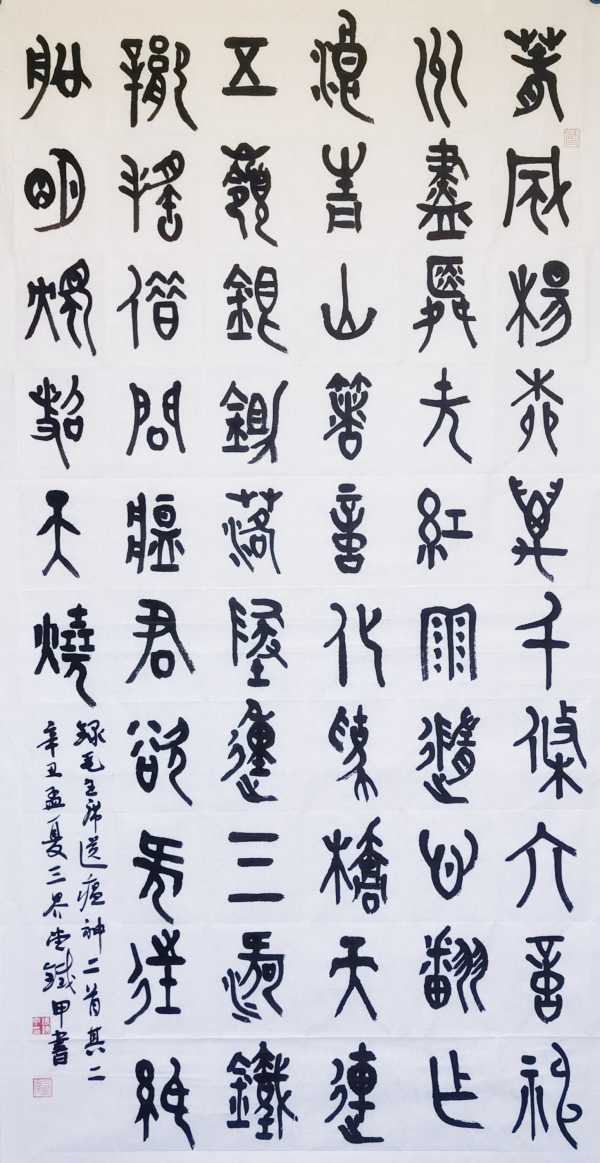 春風楊柳萬千條六億神
州盡舜堯紅雨隨心翻作
浪青山著意化為橋天連
五嶺銀鋤落地動三河鐵
臂搖借問瘟君欲何往紙
船明燭照天燒
錄毛主席送瘟神二首其二
辛丑孟夏三界堂鐵甲書